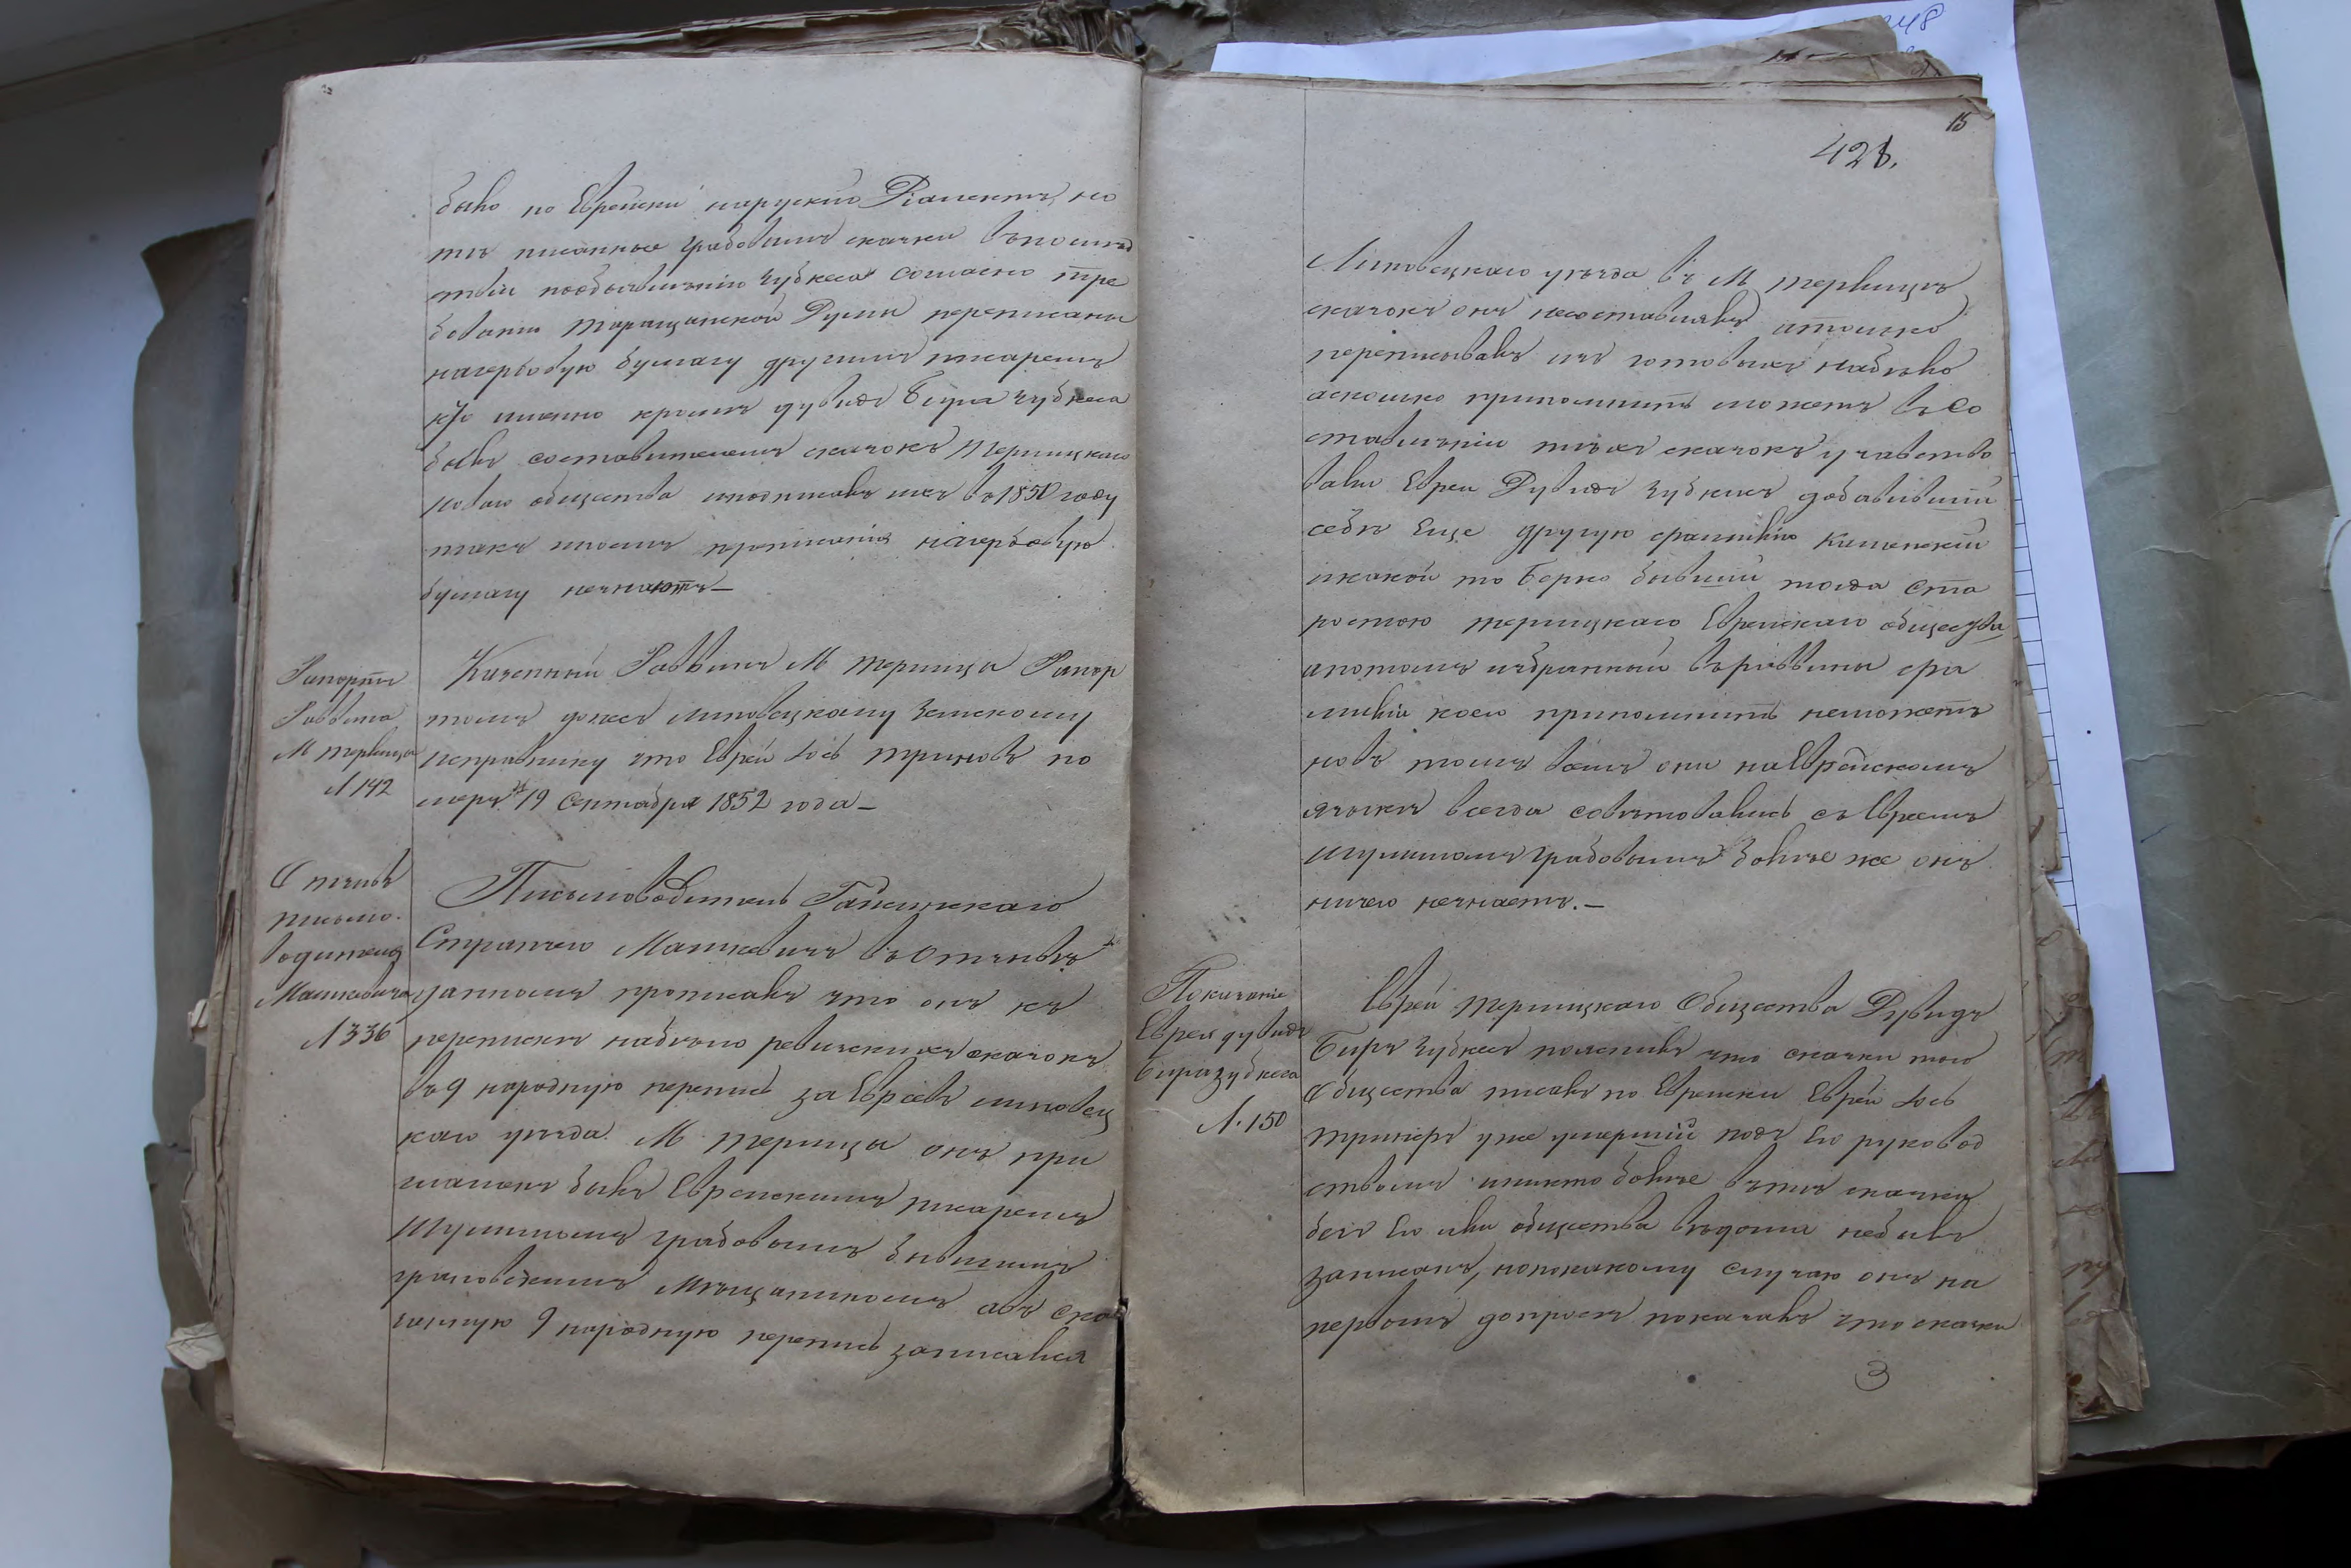 было по Еврейски нарускио Діалектъ, но
тъ писанные Грабовымъ скачки впослед
твіи Зубкеса согласно тре
бованію Таращанской Думы переписаны
нагербовую бумагу другимъ писаремъ
кто именно кромѣ дувида Бира Зубкеса
былъ составителемъ сказокъ Терлицкаго
новаго общества иподписалъ ихъ въ 1850 году
такъ переписанія нагербовую
бумагу незнаютъ —
Рапортъ
Раввина
М Терлица
Л 142
Казенный Раввинъ М Терлица Рапор
томъ донесъ Липовецкому Земскому
исправнику что Еврей Іось Триновъ по
меръ 19 Сентября 1852 года —
Отзывъ
письмо-
водителя
Машкевича
Л 336
Письмоводитель Гайсинскаго
Стряпчего Машкевичъ въ Отзывѣ
даннымъ прописалъ что онъ къ
перепискѣ набѣло ревизскихъ сказокъ
въ 9 народную перепись за Евреевъ липовец
каго уезда М Терлица онъ при
глашенъ былъ Еврейскимъ писаремъ
Мушимомъ Грабовымъ бывшимъ
Мѣщаниномъ авъ ска
занную 9 народную перепись записался
15
428.
Липовецкаго уезда въ М Терлицѣ
скачокъ онъ несоставлялъ атолько
переписывалъ изъ готовыхъ набѣло
асколько припомнить можетъ въ со
ставленіи тѣхъ скачокъ участво
вали Евреи Дувидъ Зубкисъ добавившій
себѣ Еще другую фамилію Каменскій
икакой то Берко бывшій тогда Ста
ростою терлицкаго Еврейскаго общества
апотомъ избранный въ раввины фа
милію коего припомнить неможетъ
новъ томъ всемъ они на Еврейскомъ
языкѣ всегда совѣтовались съ Евреемъ
Мушимомъ Грабовымъ болѣе же онъ
ничего незнаетъ. —
Показаніе
Еврея дувида
Бира Зубкеса
Л. 150
Еврей терлицкаго Общества Дувидъ
Биръ Зубкесъ пояснилъ что скачки того
Общества писалъ по Еврейски Еврей Іось
тринеръ уже умершій подъ Его руковод
ствомъ иникто болѣе въ тѣ скачки
безъ Его или общества вѣдома небылъ
записанъ, нопокакому случаю онъ на
первомъ допросѣ показалъ что скачки
3